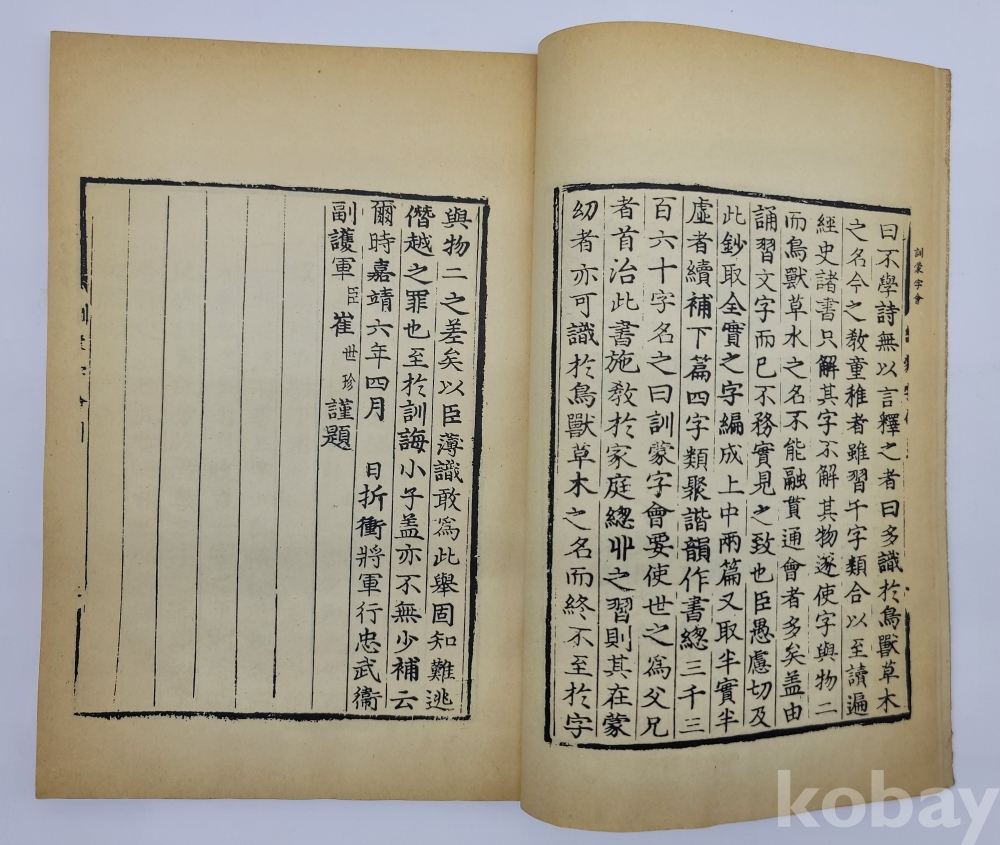 訓蒙字會
曰不學詩無以言釋之者曰多識於鳥獸草木
之名今之敎童稚者雖習千字類合以至讀遍
經史諸書只解其字不解其物遂使字與物二
而鳥獸草水之名不能融貫通會者多矣盖由
誦習文字而已不務實見之致也臣愚慮切及
此鈔取全實之字編成上中兩篇又取半實半
虛者續補下篇四字類聚諧韻作書緫三千三
百六十字名之曰訓蒙字會要使世之爲父兄
者首治此書施敎於家庭緫丱之習則其在蒙
幼者亦可識於鳥獸草木之名而終不至於字
與物二之差矣以臣薄識敢爲此舉固知難逃
僭越之罪也至於訓誨小子盖亦不無少補云
爾時嘉靖六年四月 日折衝將軍行忠武衞
副護軍臣崔世珍謹題
kobay